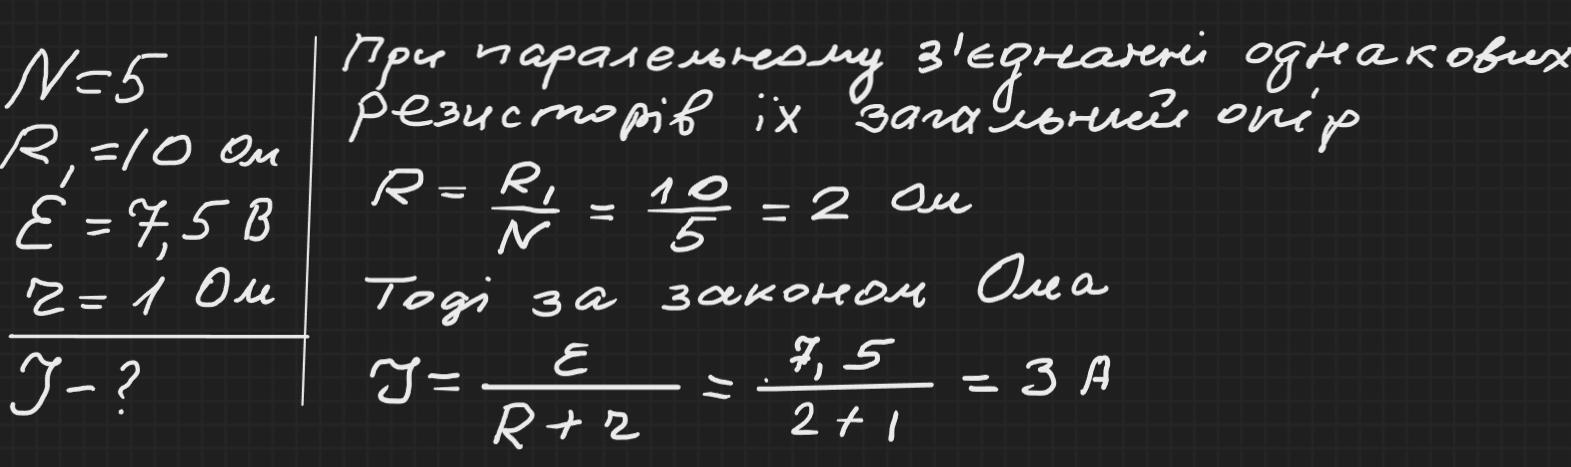 N=5
R₁=10 Ом
ℰ=7,5 В
r=1 Ом
J-?
При паралельному з'єднанні однакових
резисторів їх загальний опір
R = R₁/N = 10/5 = 2 Ом
Тоді за законом Ома
J = ℰ/(R+r) = 7,5/(2+1) = 3 А